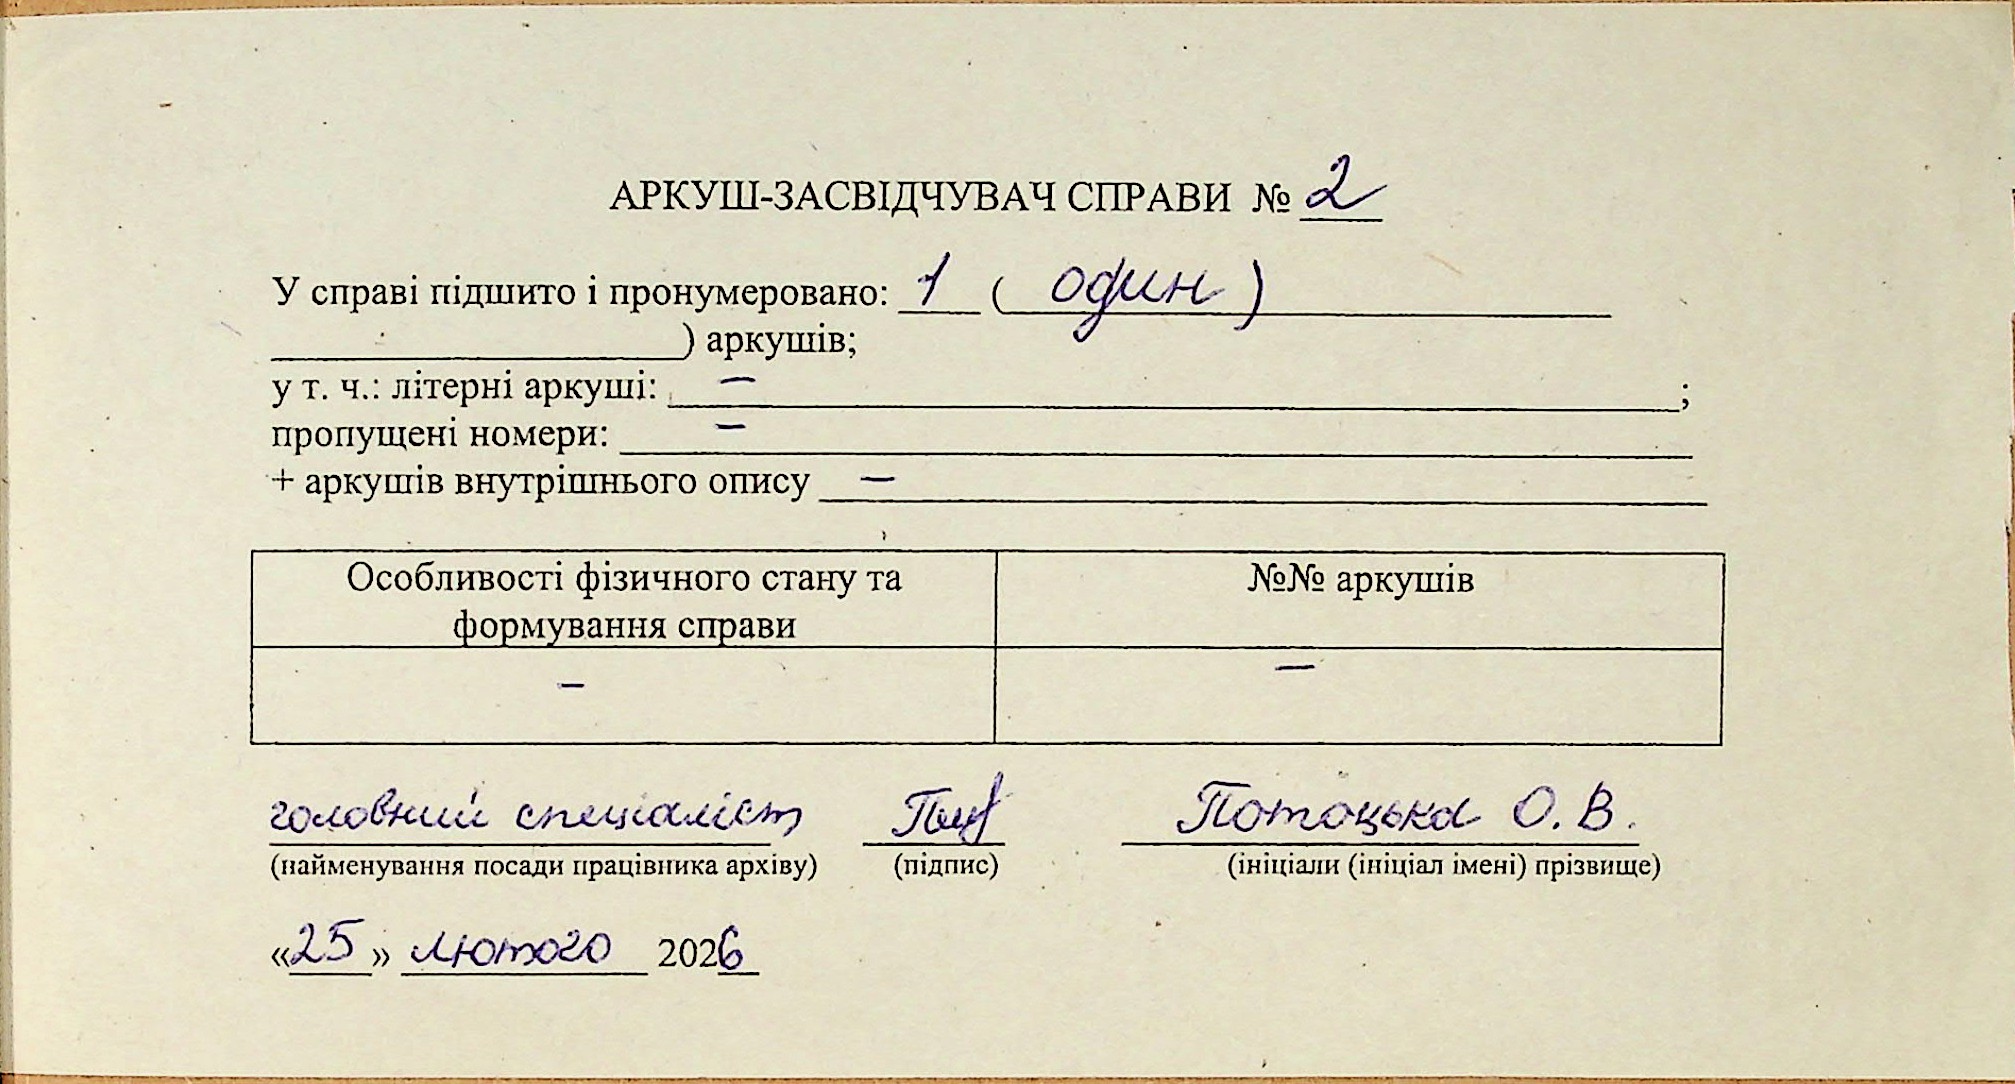 АРКУШ-ЗАСВІДЧУВАЧ СПРАВИ № 2
У справі підшито і пронумеровано: 1 ( один )
) аркушів;
у т. ч.: літерні аркуші: – ;
пропущені номери: –
+ аркушів внутрішнього опису –
Особливості фізичного стану та формування справи
№№ аркушів
– –
головний спеціаліст Потоцька О. В.
(найменування посади працівника архіву) (підпис) (ініціали (ініціал імені) прізвище)
«25» лютого 2026